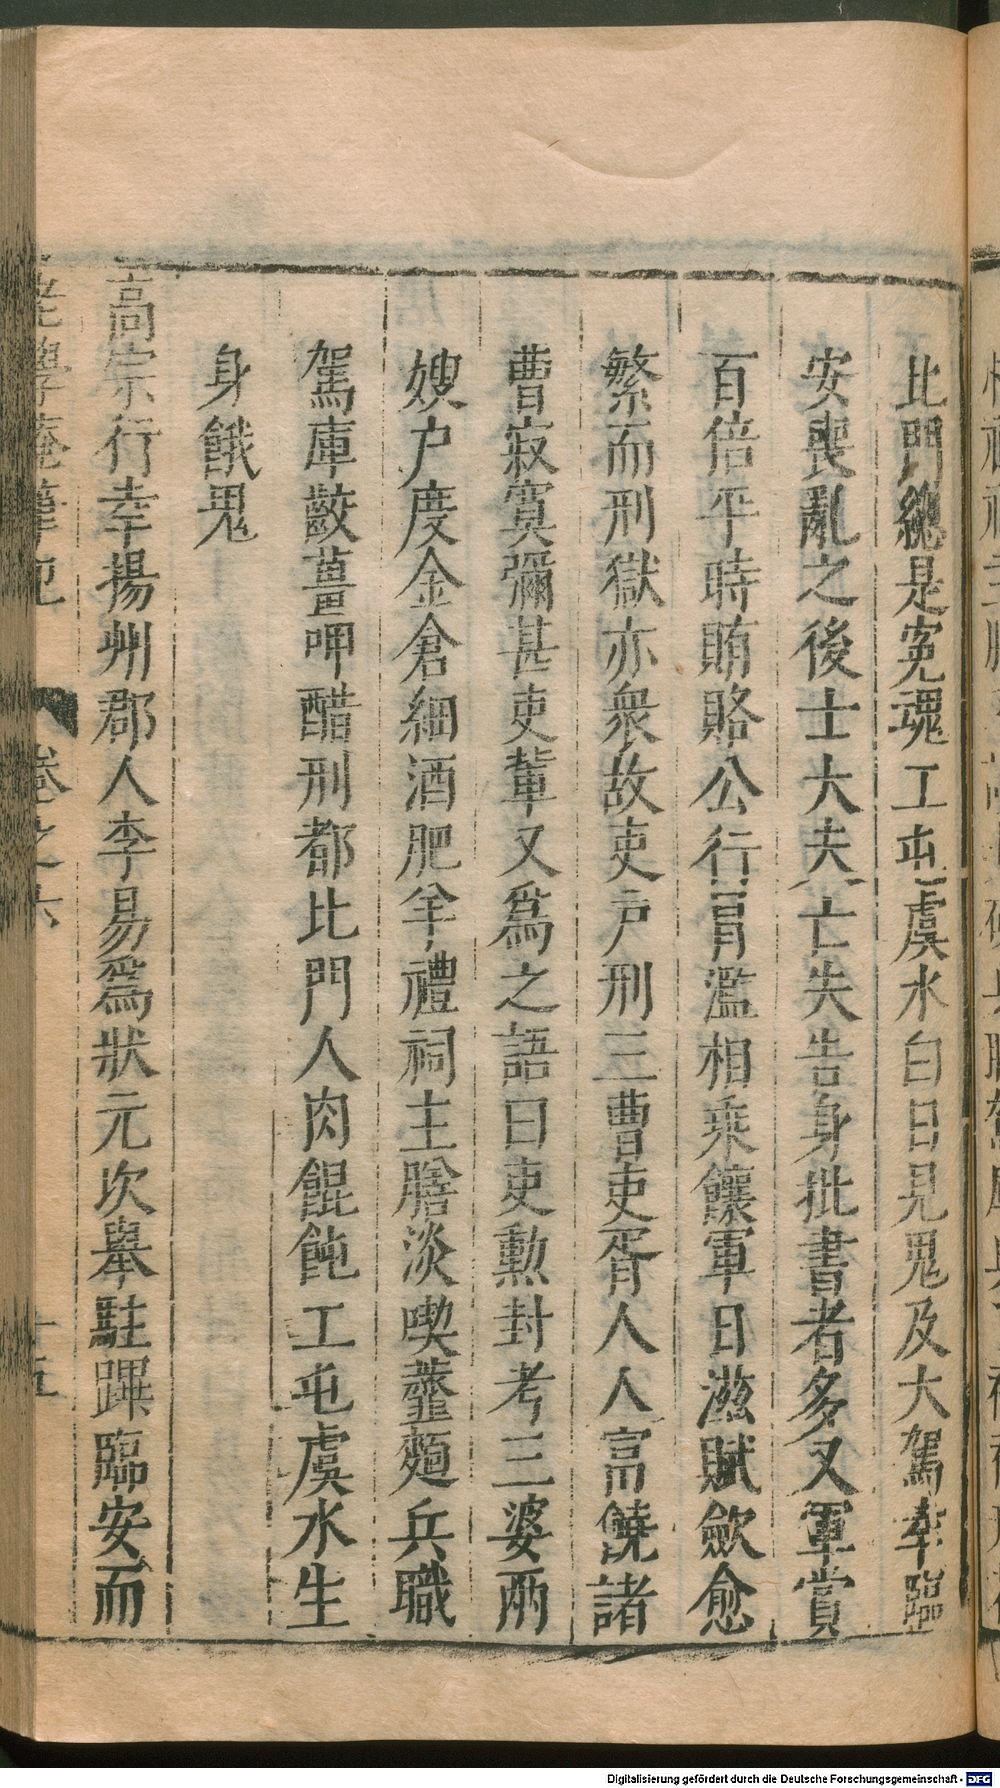 比門總是寃魂工屯虞水白日見鬼及大駕幸臨
安喪亂之後士大夫亡失告身批書者多又軍賞
百倍平時賄賂公行冒濫相乘饟軍日滋賦歛愈
繁而刑獄亦衆故吏戸刑三曹吏胥人人富饒諸
曹寂寞彌甚吏輩又爲之語曰吏勲封考三婆兩
嫂户度金倉細酒肥羊禮祠主膳淡喫虀麵兵職
駕庫齩薑呷醋刑都比門人肉餛飩工屯虞水生
身餓鬼
高宗行幸揚州郡人李易爲狀元次舉駐蹕臨安而
老學庵筆記
卷之六
十五
Digitalisierung gefördert durch die Deutsche Forschungsgemeinschaft - DFG